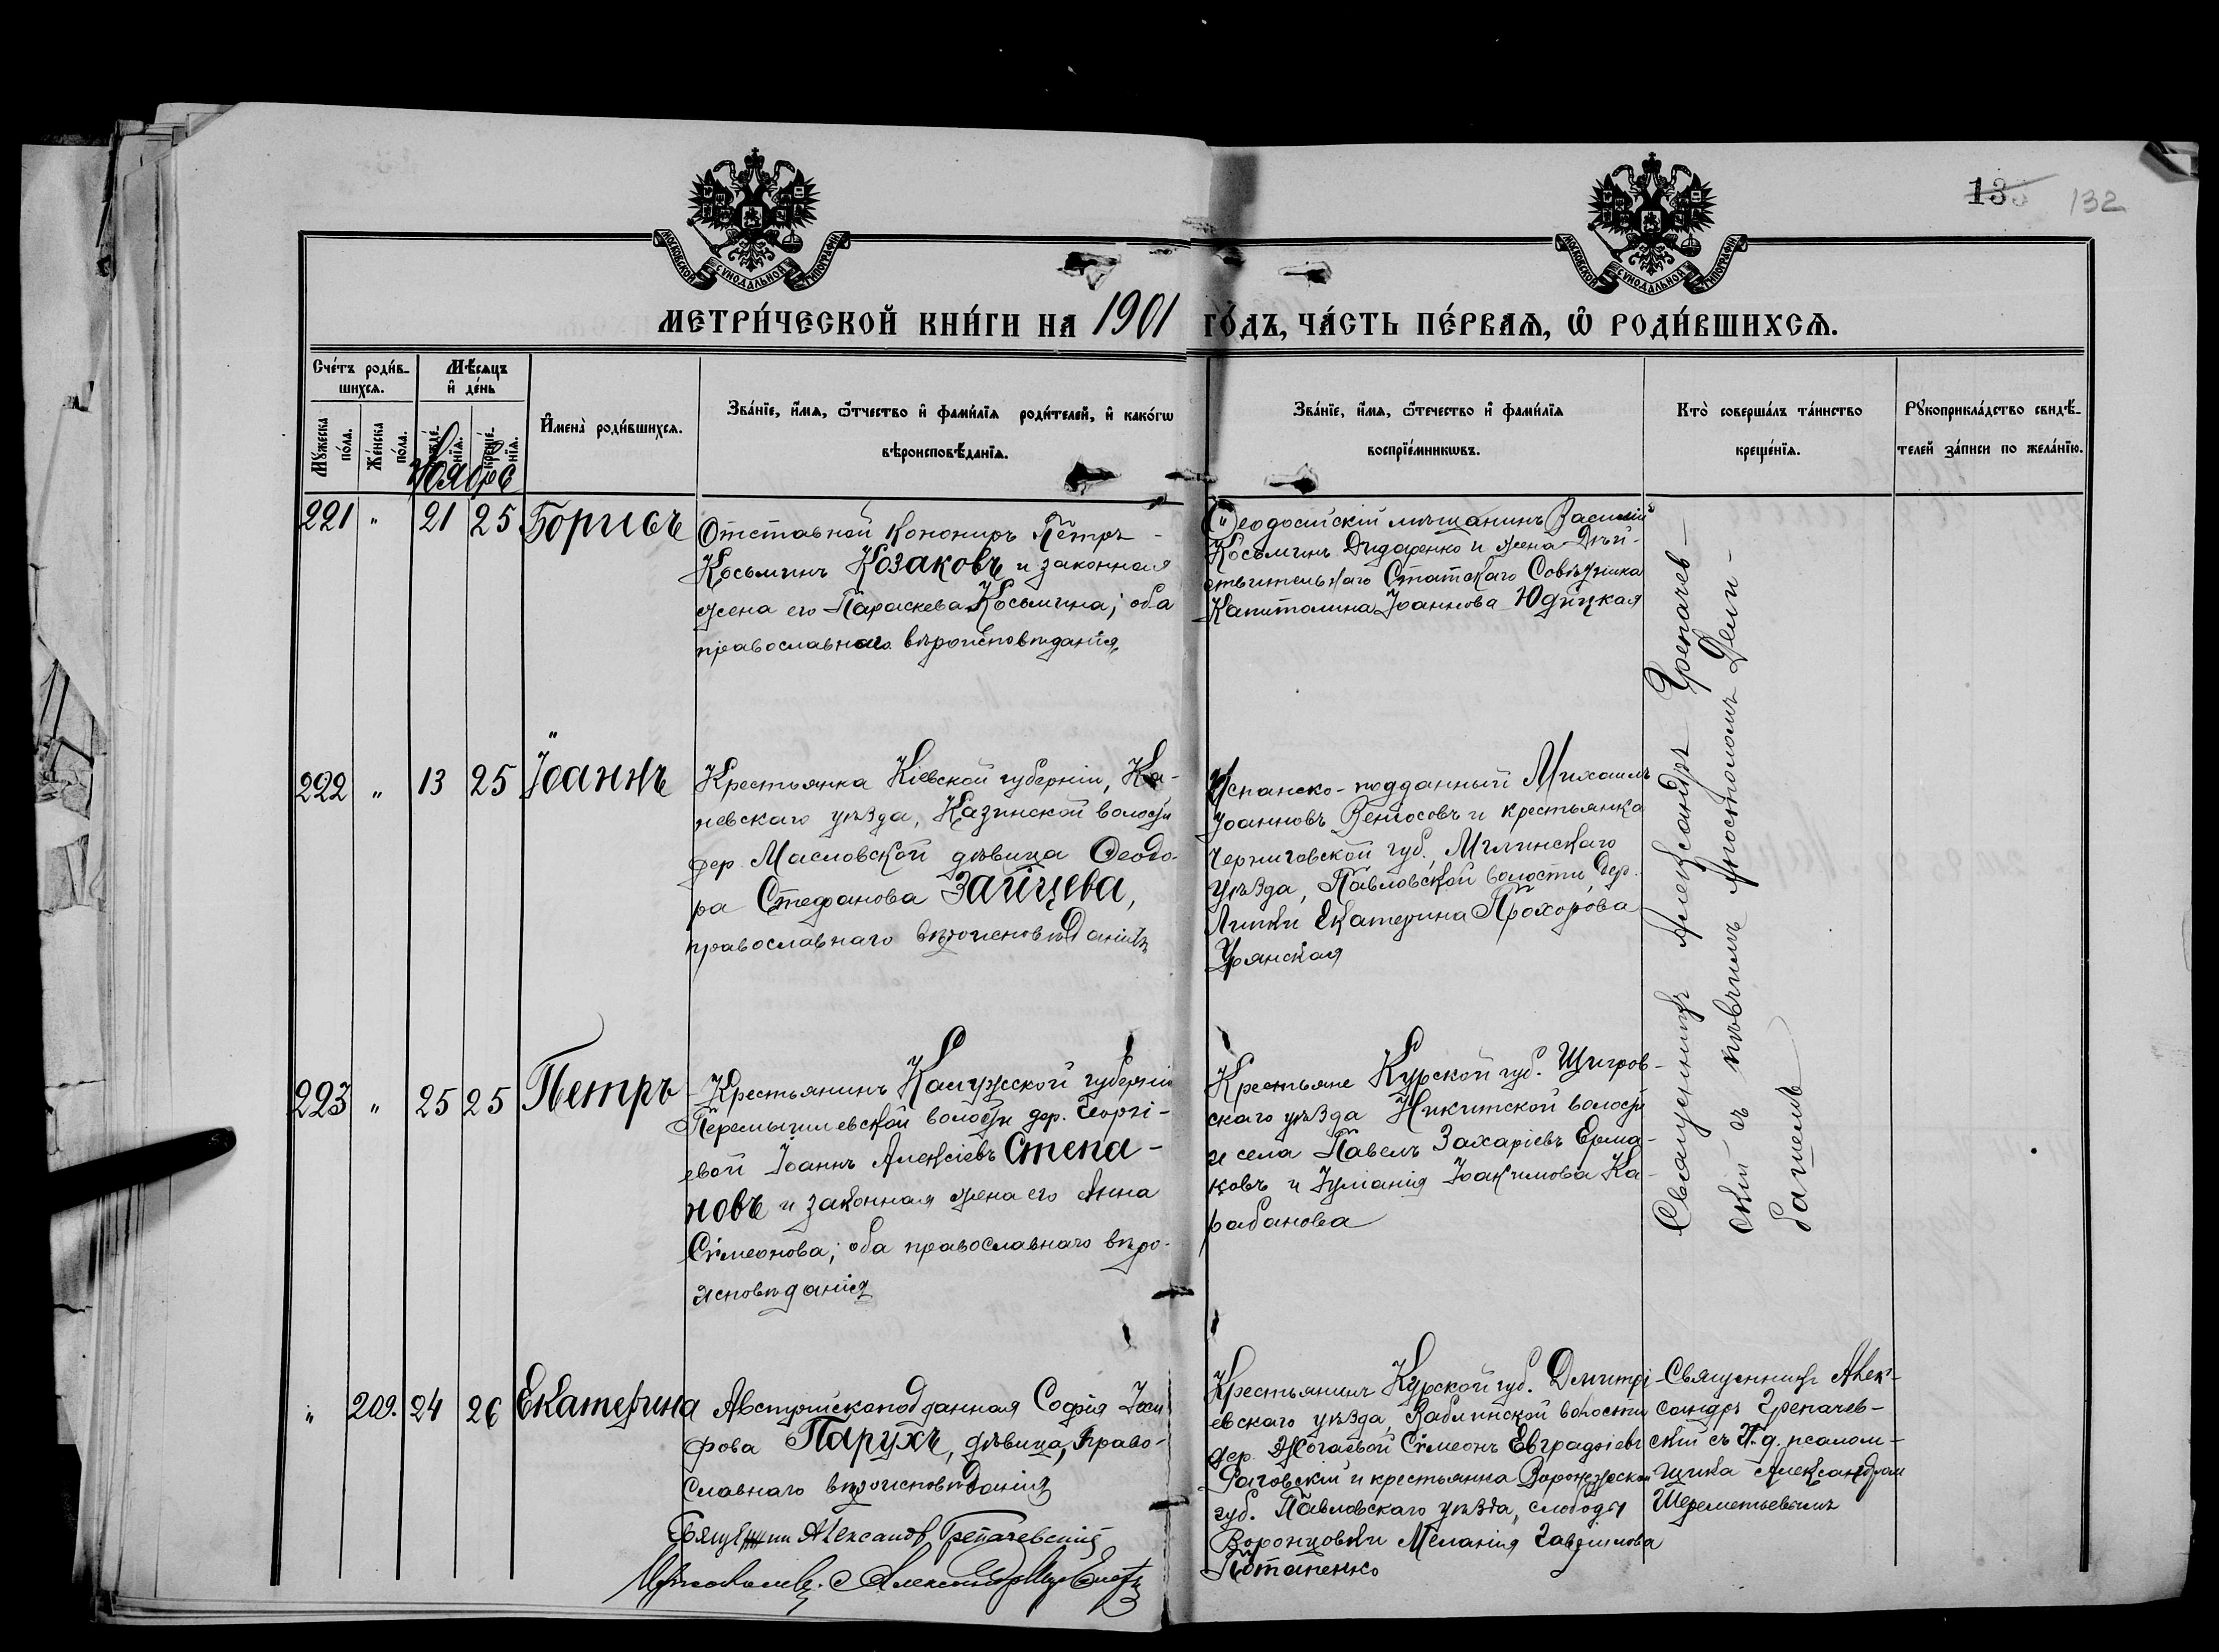 135 132
МОСКОВСКОЙ СѴНОДАЛЬНОЙ ТИПОГРАФІИ
МОСКОВСКОЙ СѴНОДАЛЬНОЙ ТИПОГРАФІИ
МЕТРИ́ЧЕСКОЙ КНИ́ГИ НА 1901 ГО́ДЪ, ЧА́СТЬ ПЕ́РВАЯ, Ѡ РОДИ́ВШИХСЯ.
Сче́тъ роди́в-
шихся.
Мѣ́сяцъ
и де́нь
Му́жеска
по́ла.
Же́нска
по́ла.
рожде-
нія.
креще-
нія.
Ноябрь
Имена̀ роди́вшихся.
Зва́нїе, и́мя, ѻ҆́тчество и фами́лїя роди́телей, и како́гѡ
вѣроисповѣ́данїя.
Зва́нїе, и́мя, ѻ҆те́чество и фами́лїя
воспрїе́мникѡвъ.
Кто̀ соверша́лъ та́инство
креще́нїя.
Рꙋкоприкла́дство свидѣ́-
телей за́писи по жела́нїю.
221 " 21 25 Борисъ
Отставной Канониръ Петръ
Косьминъ Козаковъ и законная
жена его Параскева Косьмина; оба
православнаго вѣроисповѣданія
Ѳеодосійскій мѣщанинъ Василій
Косьминъ Дидаренко и жена Дѣй-
ствительнаго Статскаго Совѣтника
Капитолина Іоаннова Юдицкая
222 " 13 25 Іоаннъ
Крестьянка Кіевской губерніи, Ка-
невскаго уѣзда, Казинской волости
дер. Масловской дѣвица Ѳеодо-
ра Стефанова Зайцева,
православнаго вѣроисповѣданія
Испанско-подданный Михаилъ
Іоанновъ Венсосовъ и крестьянка
Черниговской губ., Мглинскаго
уѣзда, Павловской волости, дер.
Липки Екатерина Прохорова
Урянская
223 " 25 25 Петръ
Крестьянинъ Калужской губерніи
Перемышлевской волости дер. Георгі-
евой Іоаннъ Алексіевъ Степа-
новъ и законная жена его Анна
Сѵмеонова; оба православнаго вѣро-
исповѣданія
Крестьяне Курской губ. Щигров-
скаго уѣзда Никитской волости
и села Павелъ Захаріевъ Ерма-
ковъ и Іуліанія Іоакимова Ка-
рабанова
Священникъ Александръ Грепачев-
скій съ пѣвчимъ Апостоломъ Дели-
багшемъ
" 209. 24 26 Екатерина
Австрійскоподданная Софія Іоси-
фова Парухъ, дѣвица, право-
славнаго вѣроисповѣданія
Крестьянинъ Курской губ. Дмитрі-
евскаго уѣзда, Каблинской волости
дер. Жогаевой Сѵмеонъ Евграфіевъ
Раговскій и крестьянка Воронежской
губ. Павловскаго уѣзда, слободы
Воронцовки Меланія Гавріилова
Потапенко
Священникъ Алек-
сандръ Грепачев-
скій съ И. д. псалом-
щика Александромъ
Шереметьевымъ
Священникъ Александр Грепачевскій